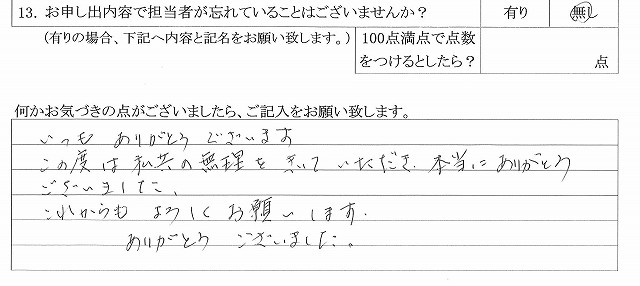 13. お申し出内容で担当者が忘れていることはございませんか？ 有り 無し
(有りの場合、下記へ内容と記名をお願い致します。) 100点満点で点数
をつけるとしたら？ 点
何かお気づきの点がございましたら、ご記入をお願い致します。
いつも ありがとう ございます
この度は 私共の無理を きいて いただき 本当に ありがとう
ございました、
これからも よろしく お願いします.
ありがとう ございました。